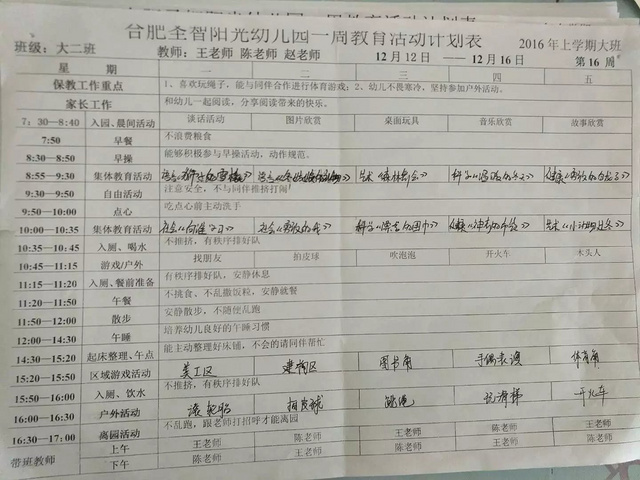 合肥圣智阳光幼儿园一周教育活动计划表
班级：大二班 教师：王老师 陈老师 赵老师 12月12日 —— 12月16日 2016年上学期大班 第16周
星 期 一 二 三 四 五
保教工作重点 1、喜欢玩绳子，能与同伴合作进行体育游戏；2、幼儿不畏寒冷，坚持参加户外活动。
家长工作 和幼儿一起阅读，分享阅读带来的快乐。
7：30—8:40 入园、晨间活动 谈话活动 图片欣赏 桌面玩具 音乐欣赏 故事欣赏
7:50 早餐 不浪费粮食
8:30—8:50 早操 能够积极参与早操活动，动作规范。
8:55—9:30 集体教育活动
9:30—9:50 自由活动 注意安全，不与同伴推挤打闹
9:50—10:00 点心 吃点心前主动洗手
10:00—10:35 集体教育活动
10:35—10:45 入厕、喝水 不推挤，有秩序排好队
10:45—11:15 游戏/户外 找朋友 拍皮球 吹泡泡 开火车 木头人
11:15—11:20 入厕、餐前准备 有秩序排好队，安静休息
11:20—11:50 午餐 不挑食、不乱撒饭粒，安静就餐
11:50—12:00 散步 安静散步，不随便乱跑
12:00—14:30 午睡 培养幼儿良好的午睡习惯
14:30—15:20 起床整理、午点 能主动整理好床铺，不会的请同伴帮忙
15:20—15:50 区域游戏活动 美工区 建构区 图书角 手偶表演 体育角
15:50—16:00 入厕、饮水 不推挤，有秩序排好队
16:00—16:30 户外活动 拍皮球 跳绳 玩滑梯 开火车
16:30—17:00 离园活动 不乱跑，跟老师打招呼才能离园
带班教师 上午 王老师 陈老师 王老师 陈老师 王老师
下午 陈老师 王老师 陈老师 王老师 陈老师